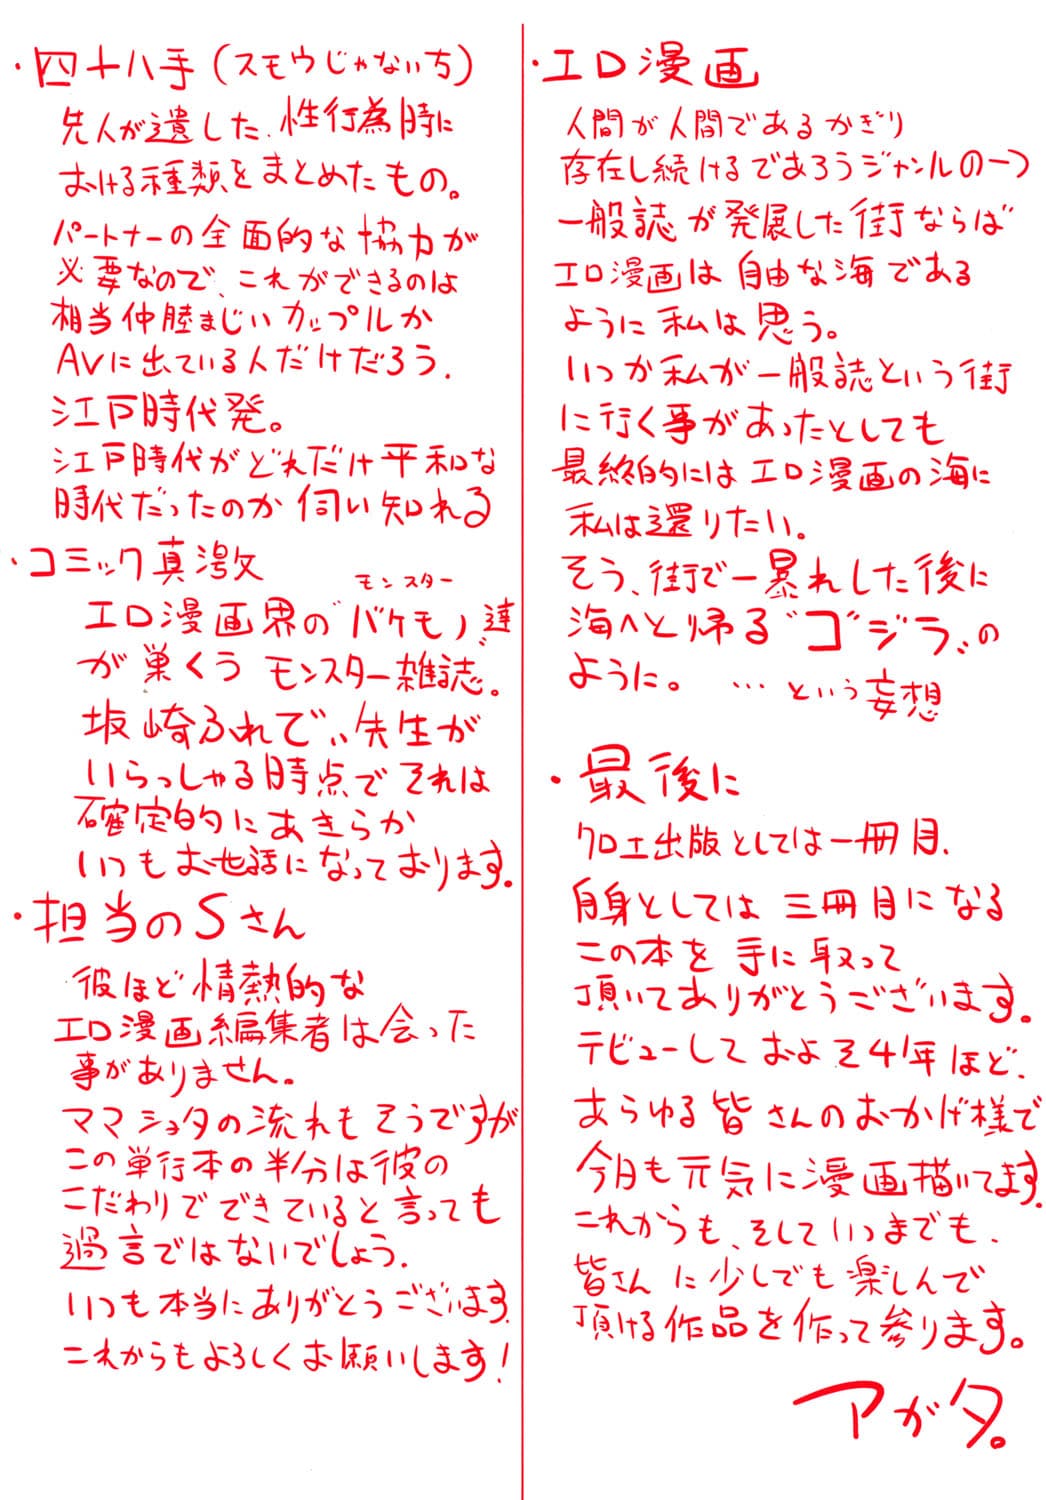 ・四十八手(スモウじゃない方)
先人が遺した、性行為時に
おける種類をまとめたもの。
パートナーの全面的な協力が
必要なので、これができるのは
相当仲睦まじいカップルか
AVに出ている人だけだろう。
江戸時代発。
江戸時代がどれだけ平和な
時代だったのか伺い知れる
・コミック真激
モンスター
エロ漫画界の"バケモノ達"
が巣くうモンスター雑誌。
坂崎ふれでぃ先生が
いらっしゃる時点でそれは
確定的にあきらか
いつもお世話になっております。
・担当のSさん
彼ほど情熱的な
エロ漫画編集者は会った
事がありません。
ママショタの流れもそうですが
この単行本の半分は彼の
こだわりでできていると言っても
過言ではないでしょう。
いつも本当にありがとうございます。
これからもよろしくお願いします!
・エロ漫画
人間が人間であるかぎり
存在し続けるであろうジャンルの一つ
一般誌が発展した街ならば
エロ漫画は自由な海である
ように私は思う。
いつか私が一般誌という街
に行く事があったとしても
最終的にはエロ漫画の海に
私は還りたい。
そう、街で一暴れした後に
海へと帰る"ゴジラ"の
ように。 …という妄想
・最後に
クロエ出版としては一冊目、
自身としては三冊目になる
この本を手に取って
頂いてありがとうございます。
デビューしておよそ4年ほど、
あらゆる皆さんのおかげ様で
今月も元気に漫画描いてます。
これからも、そしていつまでも、
皆さんに少しでも楽しんで
頂ける作品を作って参ります。
アガタ。